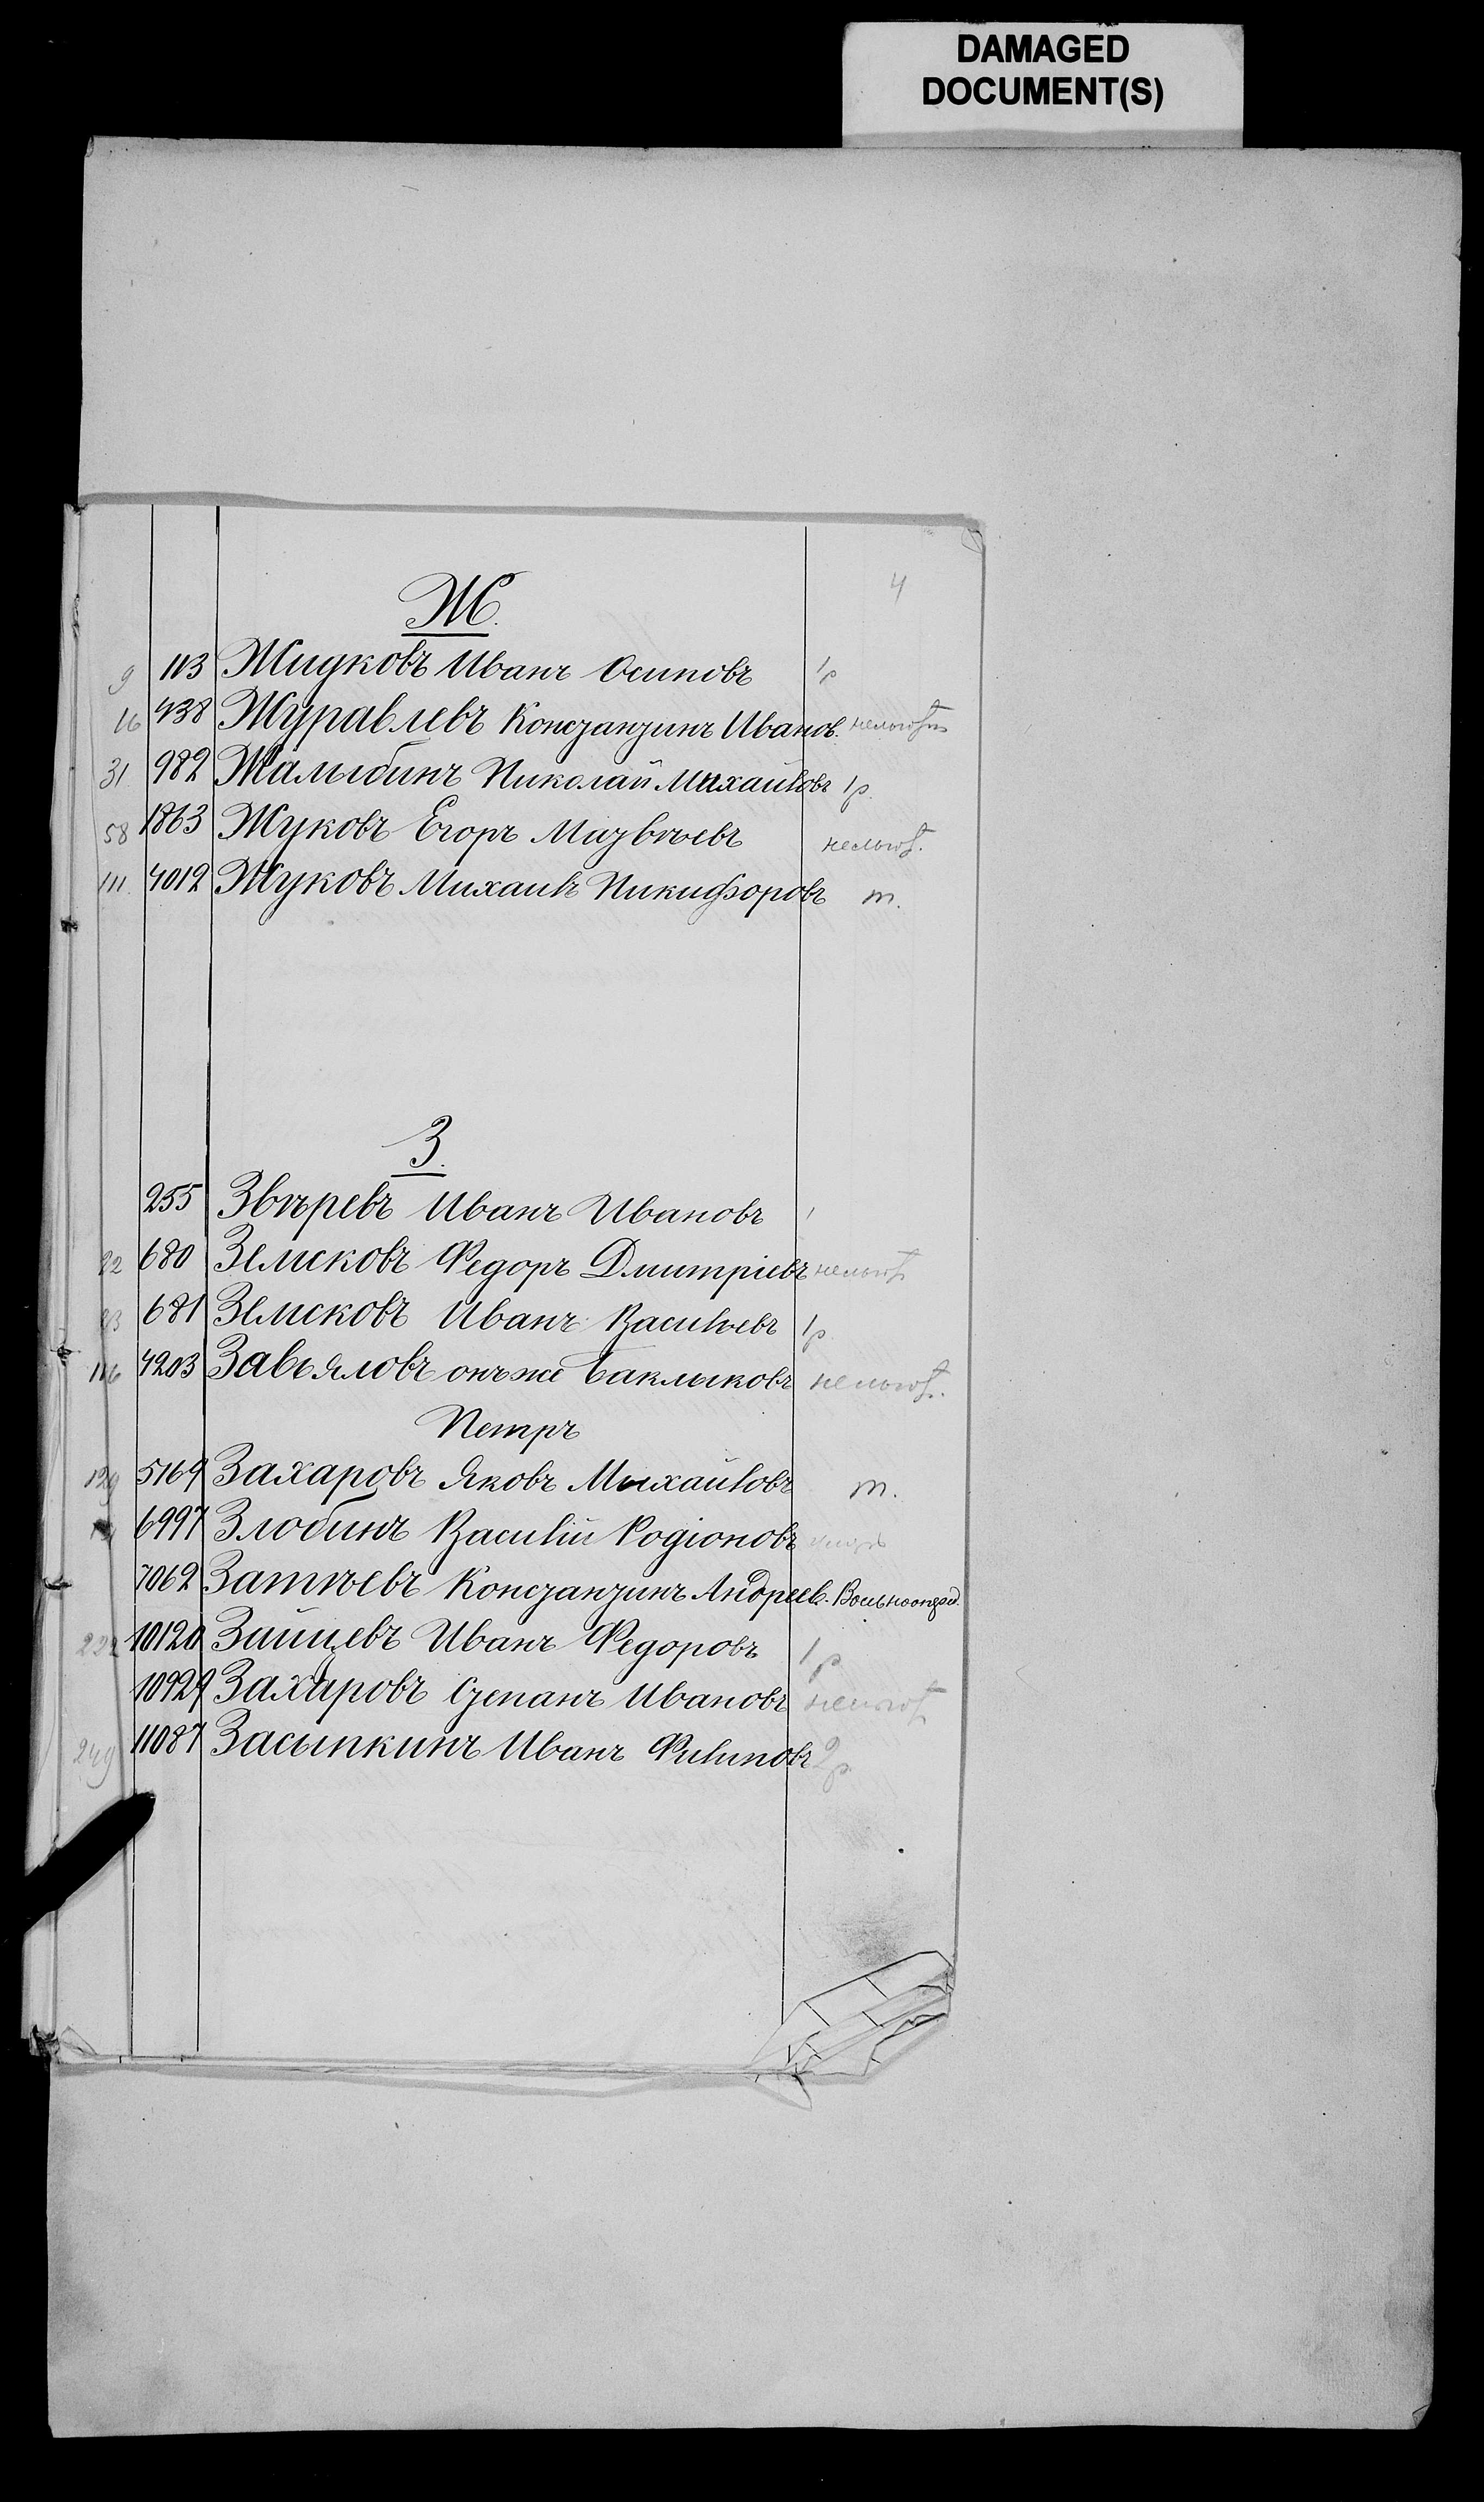 DAMAGED
DOCUMENT(S)
4
Ж.
9 113 Жидковъ Иванъ Осиповъ 1р
16 438 Журавлевъ Константинъ Иванов. нельгот
31 982 Жалыбинъ Николай Михайловъ 1р.
58 1863 Жуковъ Егоръ Матвѣевъ нельгот.
111. 4012 Жуковъ Михаилъ Никифоровъ т.
З.
255 Звѣревъ Иванъ Ивановъ 1
22 680 Земсковъ Федоръ Дмитріевъ нельгот
23 681 Земсковъ Иванъ Васильевъ 1р
116 4203 Завьяловъ онъ же Баклыковъ нельгот.
Петръ
129 5169 Захаровъ Яковъ Михайловъ т.
6997 Злобинъ Василій Родіоновъ
7062 Затѣевъ Константинъ Андреев. Вольноопред.
222 10120 Зайцевъ Иванъ Федоровъ 1р
10929 Захаровъ Степанъ Ивановъ нельгот
249 11087 Засыпкинъ Иванъ Филиповъ 2р